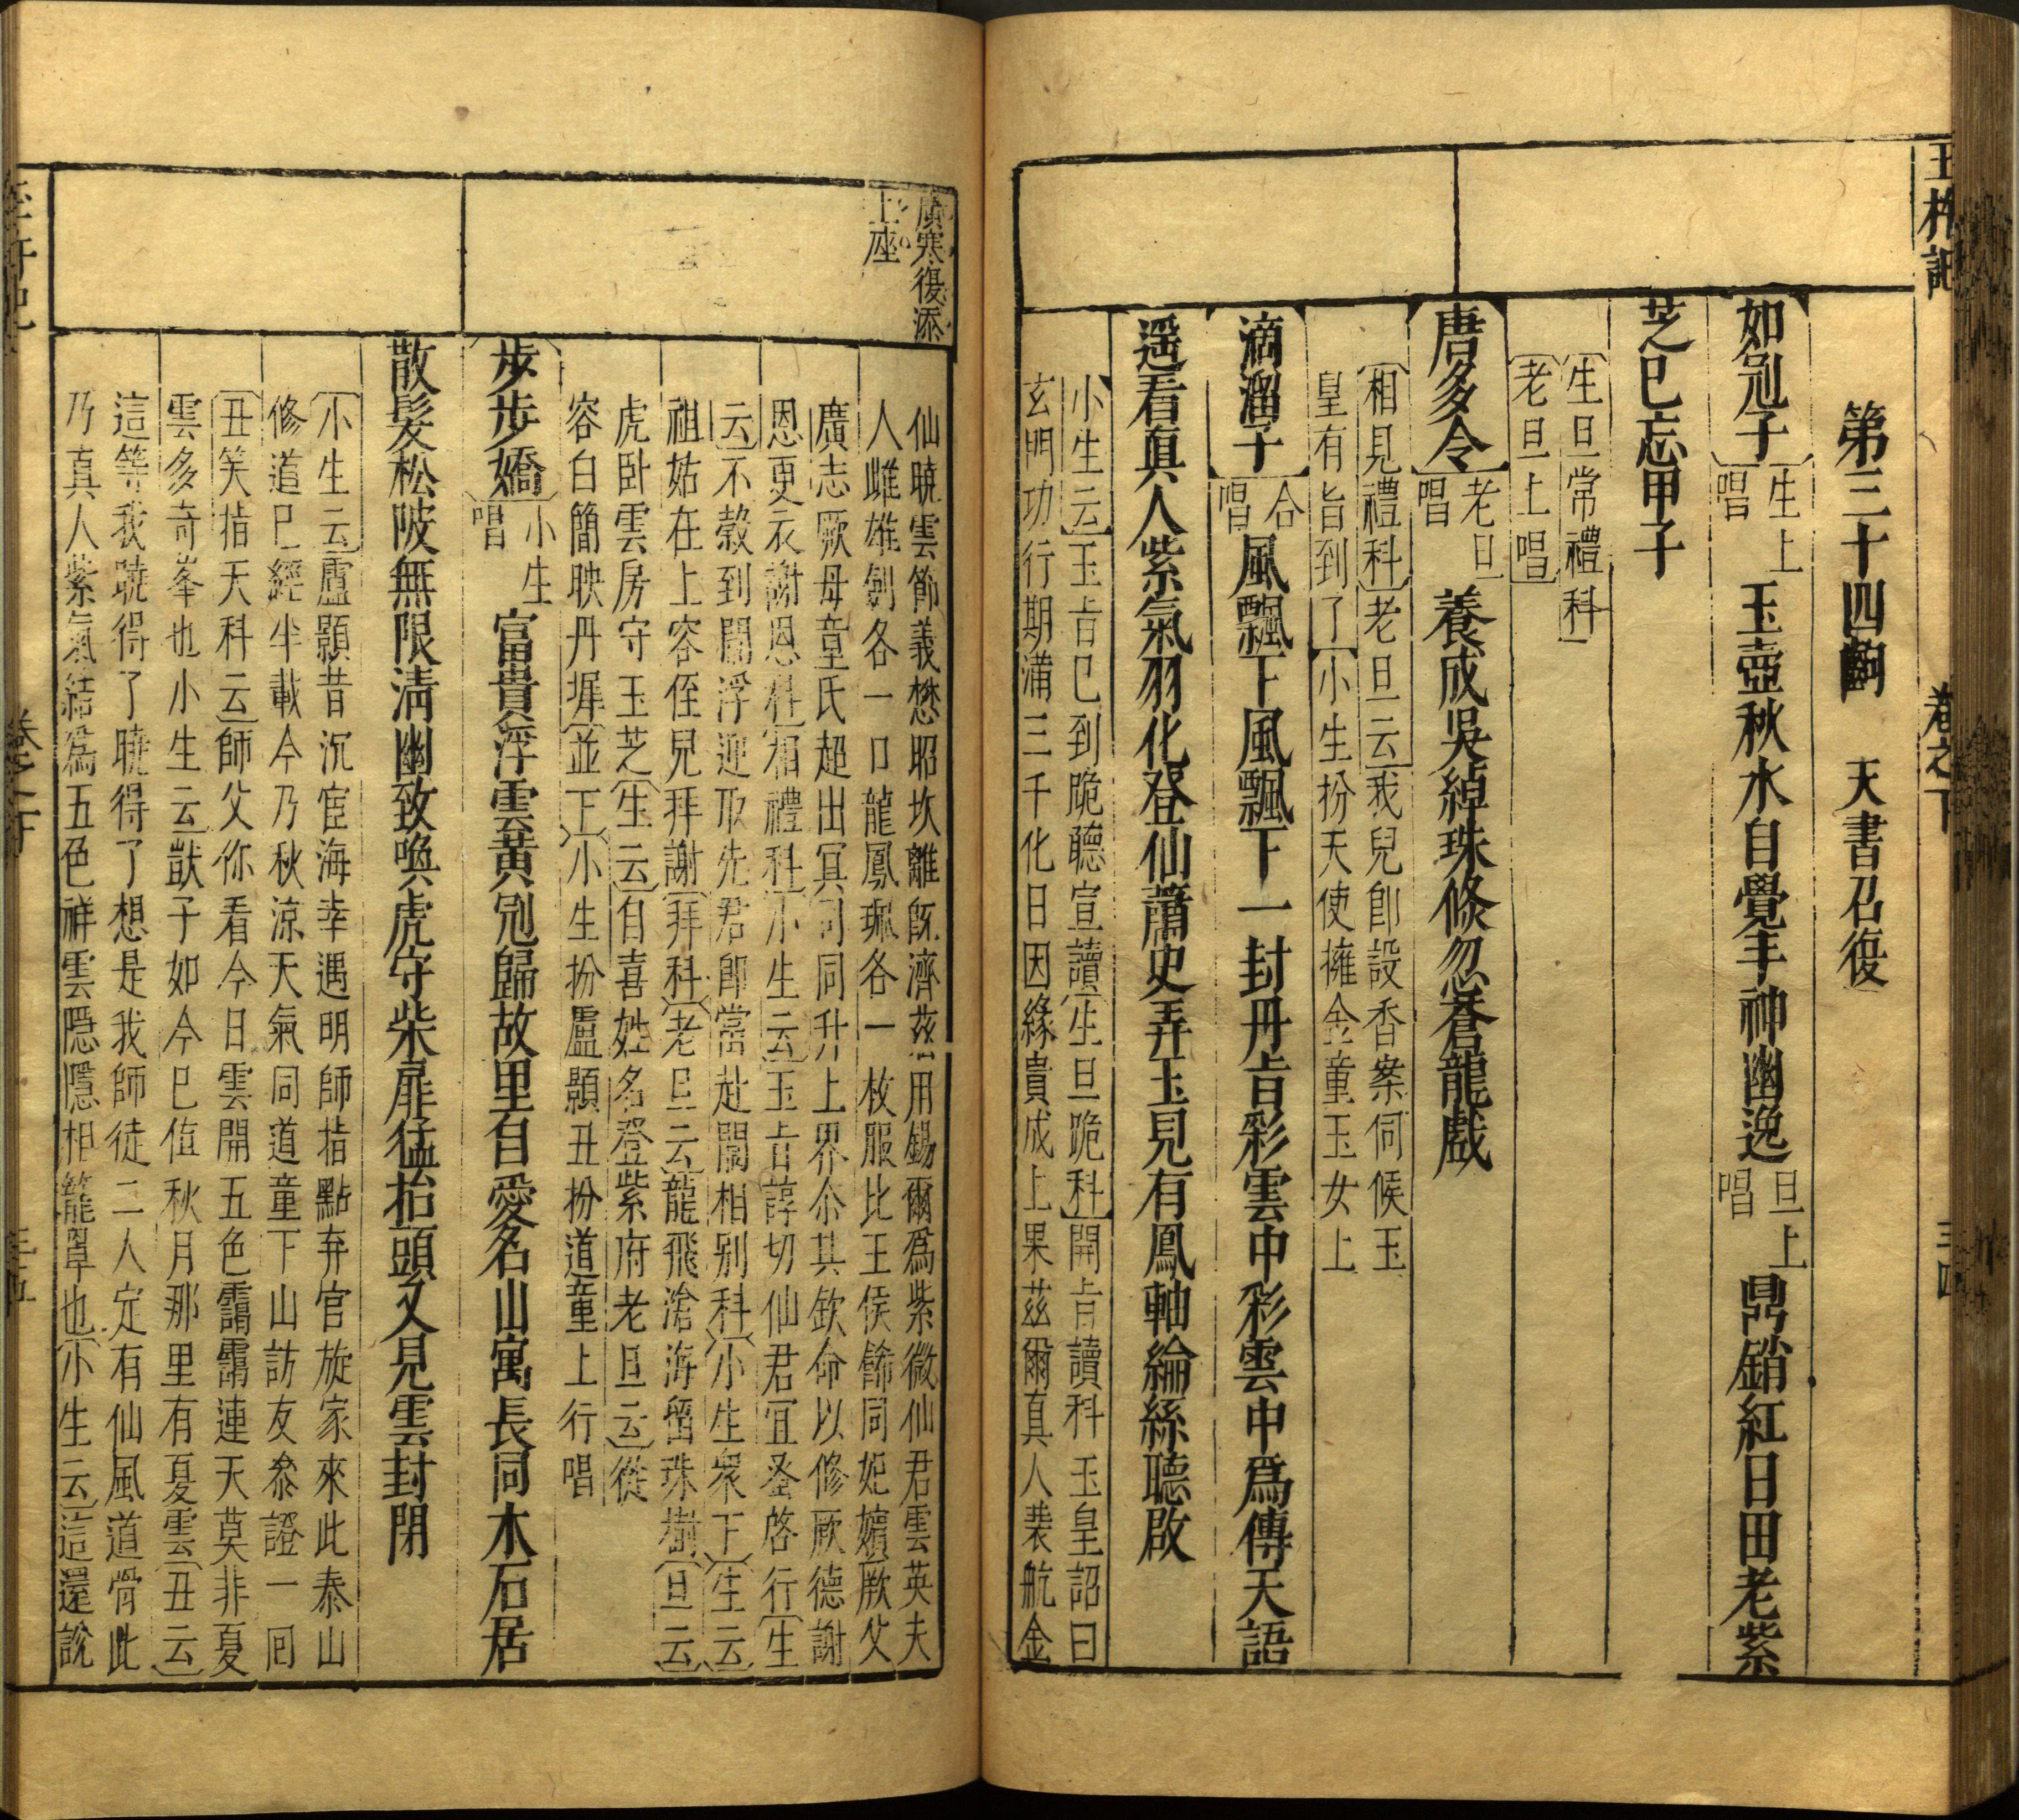 玉杵記
卷之下
三四
第三十四齣　天書召復
如冤子 生上唱 玉壺秋水自覺丰神幽逸 旦上唱 鼎銷紅日田老紫
芝已忘甲子
生旦常禮科
老旦上唱
唐多令 老旦唱 養成吳綽珠倐忽奮龍戲
相見禮科 老旦云 我兒卽設香案伺候玉
皇有旨到了 小生扮天使擁金童玉女上
滴溜子 合唱 風飄下風飄下一封丹旨彩雲中彩雲中爲傳天語
遥看真人紫氣羽化登仙蕭史弄玉見有鳳軸綸絲聽啟
小生云 玉旨已到跪聽宣讀 生旦跪科 開旨讀科 玉皇詔曰
玄門功行期滿三千化日因緣貴成上果茲爾真人裴航金
廣寒復添
上座
仙曉雲節義懋昭坎離旣濟茲用錫爾爲紫微仙君雲英夫
人雌雄劍各一口龍鳳珮各一枚服比王侯餙同妃嬪厥父
廣志厥母童氏超出冥司同升上界尒其欽命以修厥德謝
恩更衣謝恩科 相禮科 小生云 玉旨諄切仙君宜蚤啓行 生
云 不穀到閻浮迎取先君卽當赴闕相别科 小生衆下 生云
祖姑在上容侄兒拜謝 拜科 老旦云 龍飛滄海留珠樹 旦云
虎卧雲房守玉芝 生云 自喜姓名登紫府老旦云 從
容白簡映丹墀 並下 小生扮盧顥丑扮道童上行唱
步步嬌 小生唱 富貴浮雲黃冠歸故里自愛名山寓長同木石居
散髮松陂無限清幽致喚虎守柴扉猛抬頭又見雲封閉
小生云 盧顥昔沉宦海幸遇明師指點弃官旋家來此泰山
修道已經半載今乃秋涼天氣同道童下山訪友叅證一回
丑笑指天科云 師父你看今日雲開五色靄靄連天莫非夏
雲多奇峯也小生云 獃子如今已值秋月那里有夏雲 丑云
這等我曉得了曉得了想是我師徒二人定有仙風道骨此
乃真人紫氣結爲五色祥雲隠隱相籠罩也 小生云 這還說